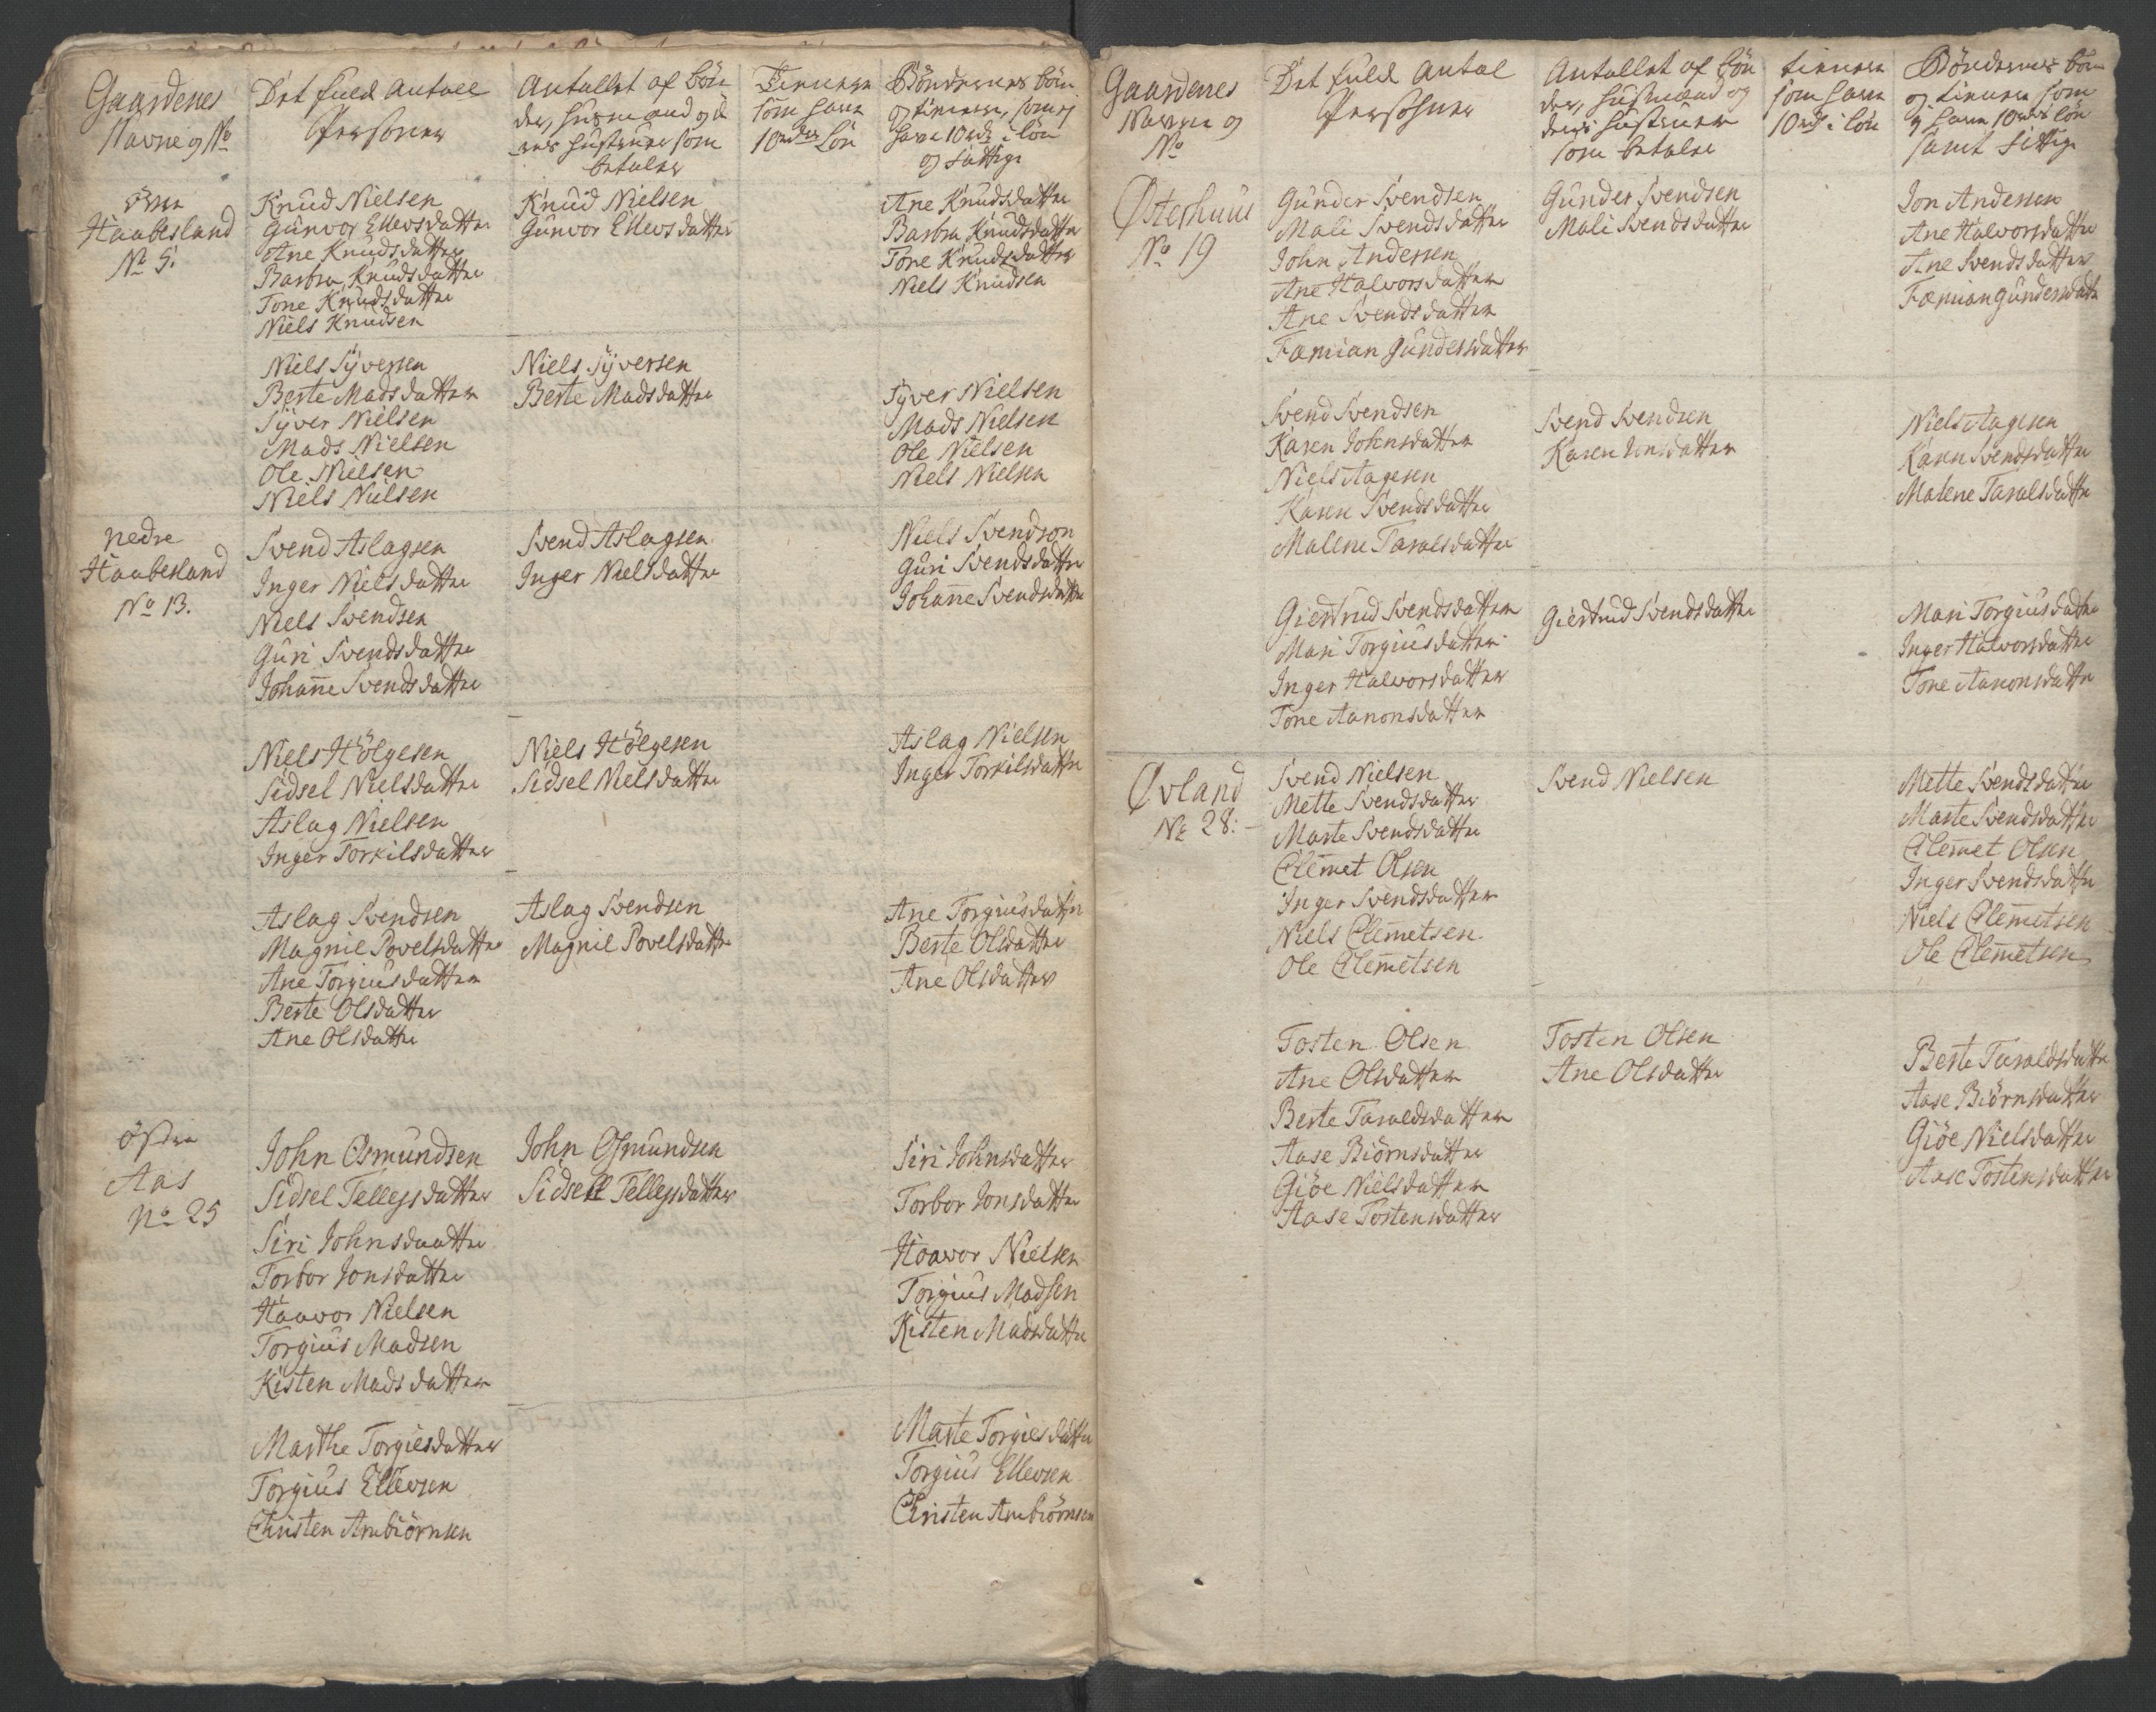 Gaardenes
Navne og No
Det fuld Antall
Personer
Antallet af bön
der, husmænd og de
res hustruer som
betaler
Tienere
som have
10 rdr Lön
Böndernes börn
og tienere, som ej
have 10 rdr i lön
og fattige
öfre
Haabesland
No 5.
Knud Nielsen
Gunvor Ellevsdatter
Ane Knudsdatter
Barbra Knudsdatter
Tone Knudsdatter
Niels Knudsen
Knud Nielsen
Gunvor Ellevsdatter
Ane Knudsdatter
Barbra Knudsdatter
Tone Knudsdatter
Niels Knudsen
Niels Syversen
Berte Madsdatter
Syver Nielsen
Mads Nielsen
Ole Nielsen
Niels Nielsen
Niels Syversen
Berte Madsdatter
Syver Nielsen
Mads Nielsen
Ole Nielsen
Niels Nielsen
nedre
Haabesland
No 13.
Svend Aslagsen
Inger Nielsdatter
Niels Svendsen
Guri Svendsdatter
Johan̅e Svendsdatter
Svend Aslagsen
Inger Nielsdatter
Niels Svendson
Guri Svendsdatter
Johan̅e Svendsdatter
Niels Hölgesen
Sidsel Nielsdatter
Aslag Nielsen
Inger Torkilsdatter
Niels Hölgesen
Sidsel Nielsdatter
Aslag Nielsen
Inger Torkilsdatter
Aslag Svendsen
Magnil Povelsdatter
Ane Torgiusdatter
Berte Olsdatter
Ane Olsdatter
Aslag Svendsen
Magnil Povelsdatter
Ane Torgiusdatter
Berte Olsdatter
Ane Olsdatter
östre
Aas
No 25
John Osmundsen
Sidsel Tellejsdatter
Siri Johnsdaatter
Torbor Jonsdatter
Haavor Nielsen
Torgius Madsen
Kisten Madsdatter
John Osmundsen
Sidsell Tellejsdatter
Siri Johnsdatter
Torbor Jonsdatter
Hoavor Nielsen
Torgius Madsen
Kisten Madsdatter
Marthe Torgiesdatter
Torgius Ellevsen
Christen Ambiörnsen
Marte Torgiesdatter
Torgius Ellevsen
Christen Ambiörnsen
Gaardenes
Navne og
No
Det fuld Antal
Persohner
Antallet af bön
der, husmænd og
deris hustruer
som betaler
tienere
som have
10 rdr i lön
Böndernes börn
og tienere som
ej have 10 rdr lön
samt fattige
Østerhuus
No 19
Gunder Svendsen
Mali Svendsdatter
John Andersen
Ane Halvorsdatter
Ane Svendsdatter
Fæmian Gundersdatter
Gunder Svendsen
Mali Svendsdatter
Jon Andersen
Ane Halvorsdatter
Ane Svendsdatter
Fæmian Gundersdatter
Svend Svendsen
Karen Johnsdatter
Niels Aagesen
Karen Svendsdatter
Malene Taralsdatter
Svend Svendsen
Karen Jonsdatter
Niels Aagesen
Karen Svendsdatter
Malene Taralsdatter
Giertrud Svendsdatter
Mari Torgiusdatter
Inger Halvorsdatter
Tone Aanonsdatter
Giertrud Svendsdatter
Mari Torgiusdatter
Inger Halvorsdatter
Tone Aanonsdatter
Øvland
No 28.
Svend Nielsen
Mette Svendsdatter
Marte Svendsdatter
Clem̅et Olsen
Inger Svendsdatter
Niels Clem̅etsen
Ole Clem̅etsen
Svend Nielsen
Mette Svendsdatter
Marte Svendsdatter
Clem̅et Olsen
Inger Svendsdatter
Niels Clem̅etsen
Ole Clem̅etsen
Tosten Olsen
Ane Olsdatter
Berte Taraldsdatter
Aase Biörnsdatter
Giöe Nielsdatter
Aase Tostensdatter
Tosten Olsen
Ane Olsdatter
Berte Taraldsdatter
Aase Biörnsdatter
Giöe Nielsdatter
Aase Tostensdatter